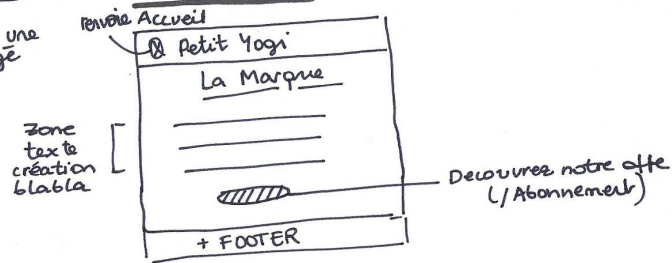 une
renvoie Accueil
Petit Yogi
La Marque
Zone
texte
création
blabla
Decouvrez notre offre
(/Abonnement)
+ FOOTER